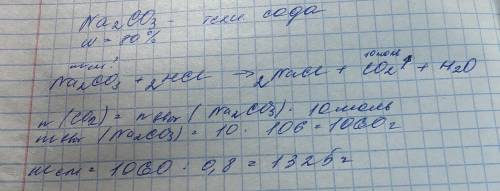 Na₂CO₃ - техн сода
w = 80%
m см ? 10 моль
Na₂CO₃ + 2HCl → 2NaCl + CO₂↑ + H₂O
n (CO₂) = n (Na₂CO₃) = 10 моль
m (Na₂CO₃) = 10 · 106 = 1060 г
m см = 1060 : 0,8 = 1325 г